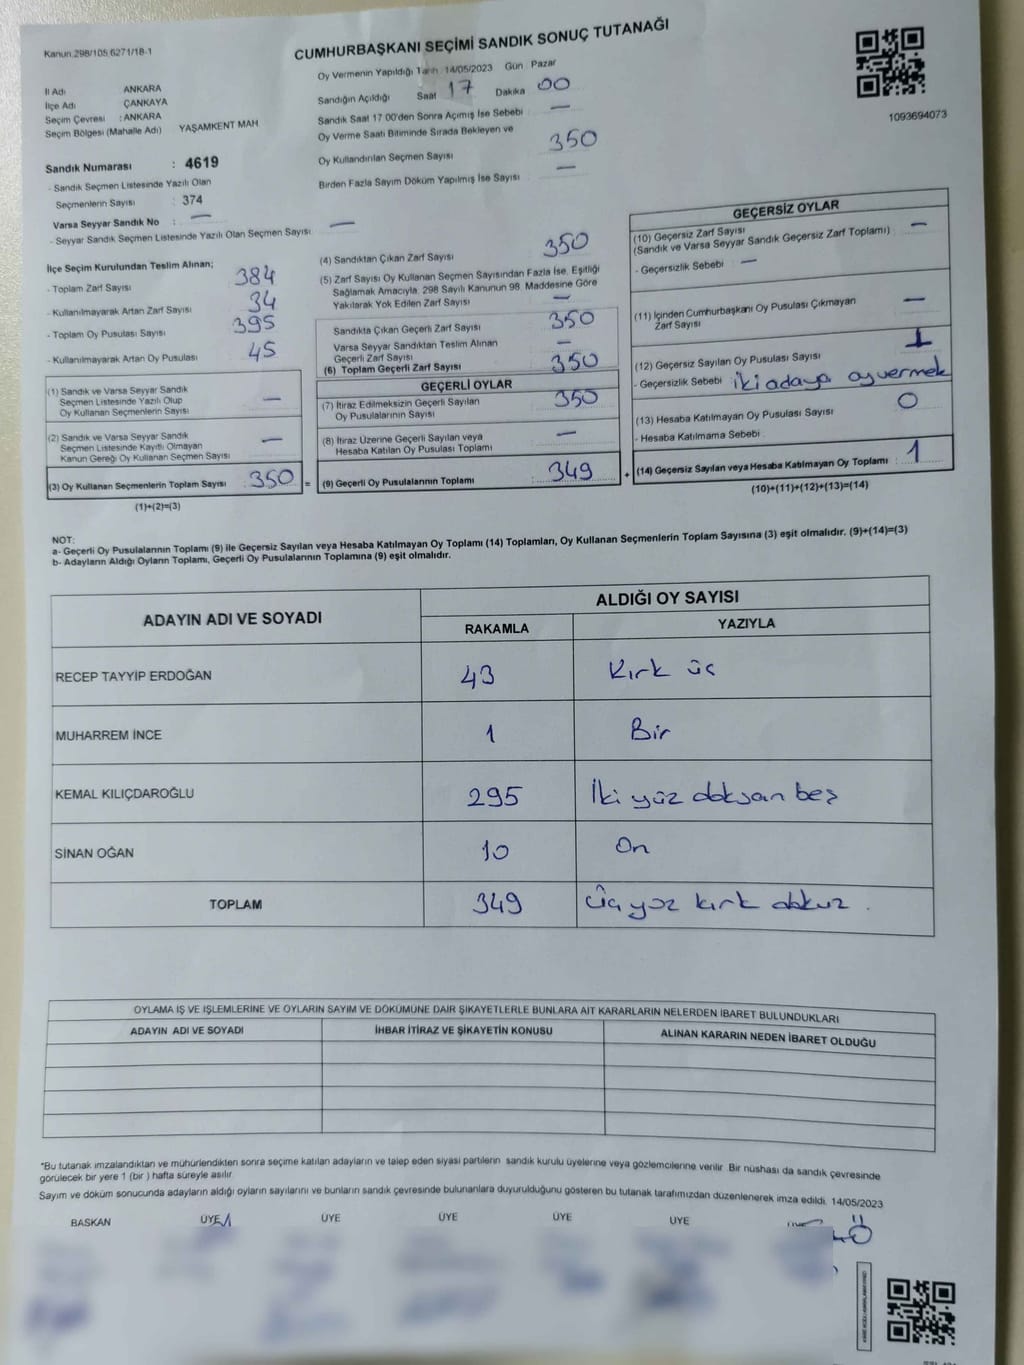 Kanun 298/105 6271/18-1
CUMHURBAŞKANI SEÇİMİ SANDIK SONUÇ TUTANAĞI
1093694073
İl Adı ANKARA
İlçe Adı ÇANKAYA
Seçim Çevresi : ANKARA
Seçim Bölgesi (Mahalle Adı) YAŞAMKENT MAH
Sandık Numarası : 4619
- Sandık Seçmen Listesinde Yazılı Olan
Seçmenlerin Sayısı : 374
Varsa Seyyar Sandık No : —
- Seyyar Sandık Seçmen Listesinde Yazılı Olan Seçmen Sayısı —
Oy Vermenin Yapıldığı Tarih 14/05/2023 Gün Pazar
Sandığın Açıldığı Saat 17 Dakika 00
Sandık Saat 17 00'den Sonra Açımış İse Sebebi —
Oy Verme Saati Bitiminde Sırada Bekleyen ve
Oy Kullandırılan Seçmen Sayısı 350
Birden Fazla Sayım Döküm Yapılmış İse Sayısı —
İlçe Seçim Kurulundan Teslim Alınan;
- Toplam Zarf Sayısı 384
- Kullanılmayarak Artan Zarf Sayısı 34
- Toplam Oy Pusulası Sayısı 395
- Kullanılmayarak Artan Oy Pusulası 45
(1) Sandık ve Varsa Seyyar Sandık
Seçmen Listesinde Yazılı Olup
Oy Kullanan Seçmenlerin Sayısı —
(2) Sandık ve Varsa Seyyar Sandık
Seçmen Listesinde Kayıtlı Olmayan
Kanun Gereği Oy Kullanan Seçmen Sayısı —
(3) Oy Kullanan Seçmenlerin Toplam Sayısı : 350 =
(1)+(2)=(3)
(4) Sandıktan Çıkan Zarf Sayısı 350
(5) Zarf Sayısı Oy Kullanan Seçmen Sayısından Fazla İse, Eşitliği
Sağlamak Amacıyla, 298 Sayılı Kanunun 98. Maddesine Göre
Yakılarak Yok Edilen Zarf Sayısı —
Sandıkta Çıkan Geçerli Zarf Sayısı 350
Varsa Seyyar Sandıktan Teslim Alınan
Geçerli Zarf Sayısı —
(6) Toplam Geçerli Zarf Sayısı 350
GEÇERLİ OYLAR
(7) İtiraz Edilmeksizin Geçerli Sayılan
Oy Pusulalarının Sayısı 350
(8) İtiraz Üzerine Geçerli Sayılan veya
Hesaba Katılan Oy Pusulası Toplamı —
(9) Geçerli Oy Pusulalarının Toplamı : 349 +
GEÇERSİZ OYLAR
(10) Geçersiz Zarf Sayısı
(Sandık ve Varsa Seyyar Sandık Geçersiz Zarf Toplamı) —
- Geçersizlik Sebebi —
(11) İçinden Cumhurbaşkanı Oy Pusulası Çıkmayan
Zarf Sayısı —
(12) Geçersiz Sayılan Oy Pusulası Sayısı 1
- Geçersizlik Sebebi iki adaya oy vermek
(13) Hesaba Katılmayan Oy Pusulası Sayısı 0
- Hesaba Katılmama Sebebi
(14) Geçersiz Sayılan veya Hesaba Katılmayan Oy Toplamı : 1
(10)+(11)+(12)+(13)=(14)
NOT:
a- Geçerli Oy Pusulalarının Toplamı (9) ile Geçersiz Sayılan veya Hesaba Katılmayan Oy Toplamı (14) Toplamları, Oy Kullanan Seçmenlerin Toplam Sayısına (3) eşit olmalıdır. (9)+(14)=(3)
b- Adayların Aldığı Oyların Toplamı, Geçerli Oy Pusulalarının Toplamına (9) eşit olmalıdır.
ADAYIN ADI VE SOYADI ALDIĞI OY SAYISI
RAKAMLA YAZIYLA
RECEP TAYYİP ERDOĞAN 43 Kırk üç
MUHARREM İNCE 1 Bir
KEMAL KILIÇDAROĞLU 295 İki yüz doksan beş
SİNAN OĞAN 10 On
TOPLAM 349 Üç yüz kırk dokuz .
OYLAMA İŞ VE İŞLEMLERİNE VE OYLARIN SAYIM VE DÖKÜMÜNE DAİR ŞİKAYETLERLE BUNLARA AİT KARARLARIN NELERDEN İBARET BULUNDUKLARI
ADAYIN ADI VE SOYADI İHBAR İTİRAZ VE ŞİKAYETİN KONUSU ALINAN KARARIN NEDEN İBARET OLDUĞU
*Bu tutanak imzalandıktan ve mühürlendikten sonra seçime katılan adayların ve talep eden siyasi partilerin sandık kurulu üyelerine veya gözlemcilerine verilir. Bir nüshası da sandık çevresinde
görülecek bir yere 1 (bir ) hafta süreyle asılır.
Sayım ve döküm sonucunda adayların aldığı oyların sayılarını ve bunların sandık çevresinde bulunanlara duyurulduğunu gösteren bu tutanak tarafımızdan düzenlenerek imza edildi. 14/05/2023
BAŞKAN ÜYE ÜYE ÜYE ÜYE ÜYE